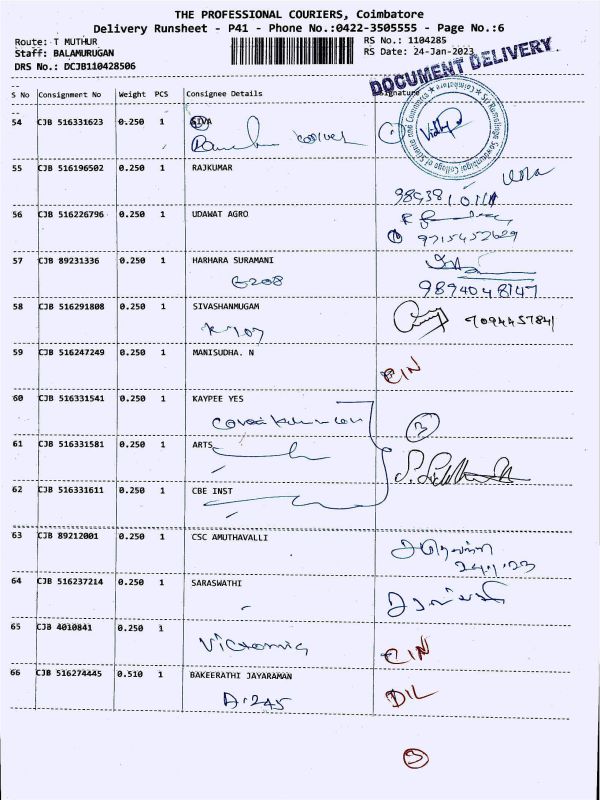 THE PROFESSIONAL COURIERS, Coimbatore
Delivery Runsheet - P41 - Phone No.:0422-3505555 - Page No.:6
Route: T MUTHUR
RS No.: 1104285
Staff: BALAMURUGAN
RS Date: 24-Jan-2023
DRS No.: DCJB110428506
DOCUMENT DELIVERY
S No Consignment No Weight PCS Consignee Details Signature
54 CJB 516331623 0.250 1 SIVA
55 CJB 516196502 0.250 1 RAJKUMAR
56 CJB 516226796 0.250 1 UDAWAT AGRO
9715452629
57 CJB 89231336 0.250 1 HARHARA SURAMANI
G208
9894048147
58 CJB 516291808 0.250 1 SIVASHANMUGAM
K-107
9094457841
59 CJB 516247249 0.250 1 MANISUDHA. N
CIN
60 CJB 516331541 0.250 1 KAYPEE YES
3
61 CJB 516331581 0.250 1 ARTS
62 CJB 516331611 0.250 1 CBE INST
63 CJB 89212001 0.250 1 CSC AMUTHAVALLI
24/1/23
64 CJB 516237214 0.250 1 SARASWATHI
65 CJB 4010841 0.250 1
Victoria
CIN
66 CJB 516274445 0.510 1 BAKEERATHI JAYARAMAN
A-245
DIL